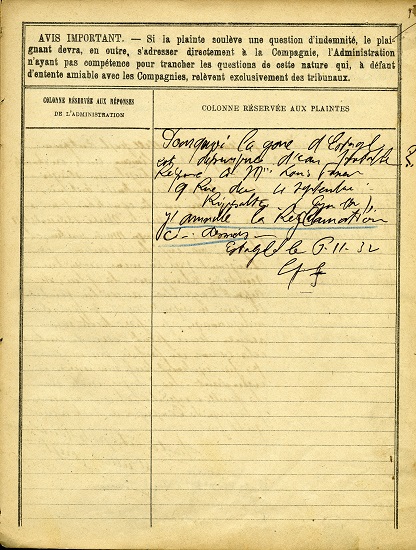 AVIS IMPORTANT. — Si la plainte soulève une question d'indemnité, le plai-
gnant devra, en outre, s'adresser directement à la Compagnie, l'Administration
n'ayant pas compétence pour trancher les questions de cette nature qui, à défaut
d'entente amiable avec les Compagnies, relèvent exclusivement des tribunaux.
COLONNE RÉSERVÉE AUX RÉPONSES
DE L'ADMINISTRATION
COLONNE RÉSERVÉE AUX PLAINTES
Pourquoi la gare d'Estagel
est dépourvue d'eau potable ?
Réponse à Mr
9 Rue du 4 septembre
Rivesaltes
J'annule la Réclamation
ci-dessus
Estagel le 6-11-32